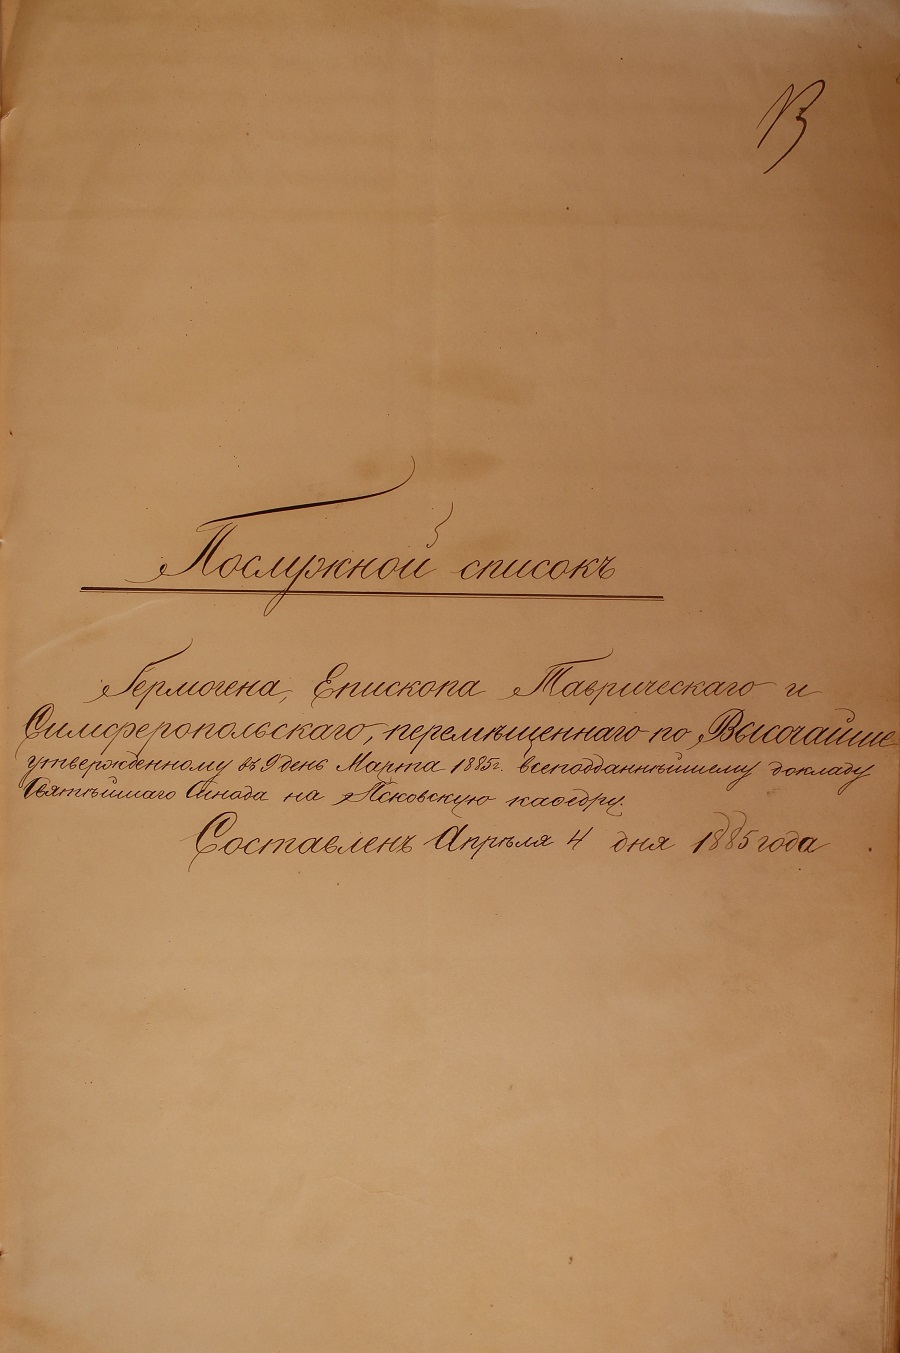 Послужной списокъ
Гермогена, Епископа Таврическаго и
Симферопольскаго, перемѣщеннаго по Высочайше
утвержденному въ 9 день Марта 1885г. всеподданнѣйшему докладу
Святѣйшаго Синода на Псковскую каѳедру.
Составленъ Апрѣля 4 дня 1885 года